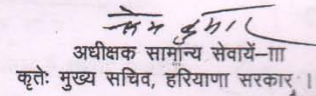 अधीक्षक सामान्य सेवायें-III
कृतेः मुख्य सचिव, हरियाणा सरकार ।